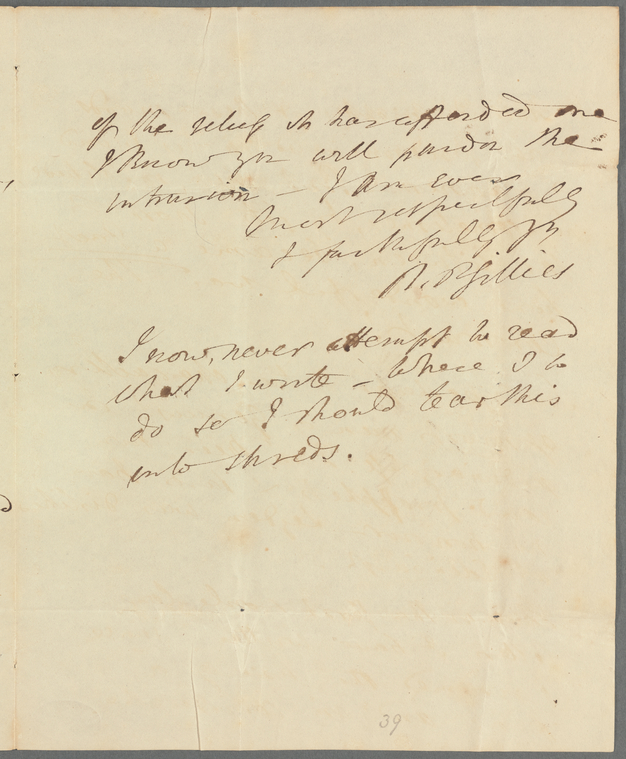 of the relief it has afforded me
I know yr will pardon the
intrusion – I am ever
Most respectfully
& faithfully yr
R. P Gillies
I now, never attempt to read
what I write – Where I to
do so I should tear this
into shreds.
39